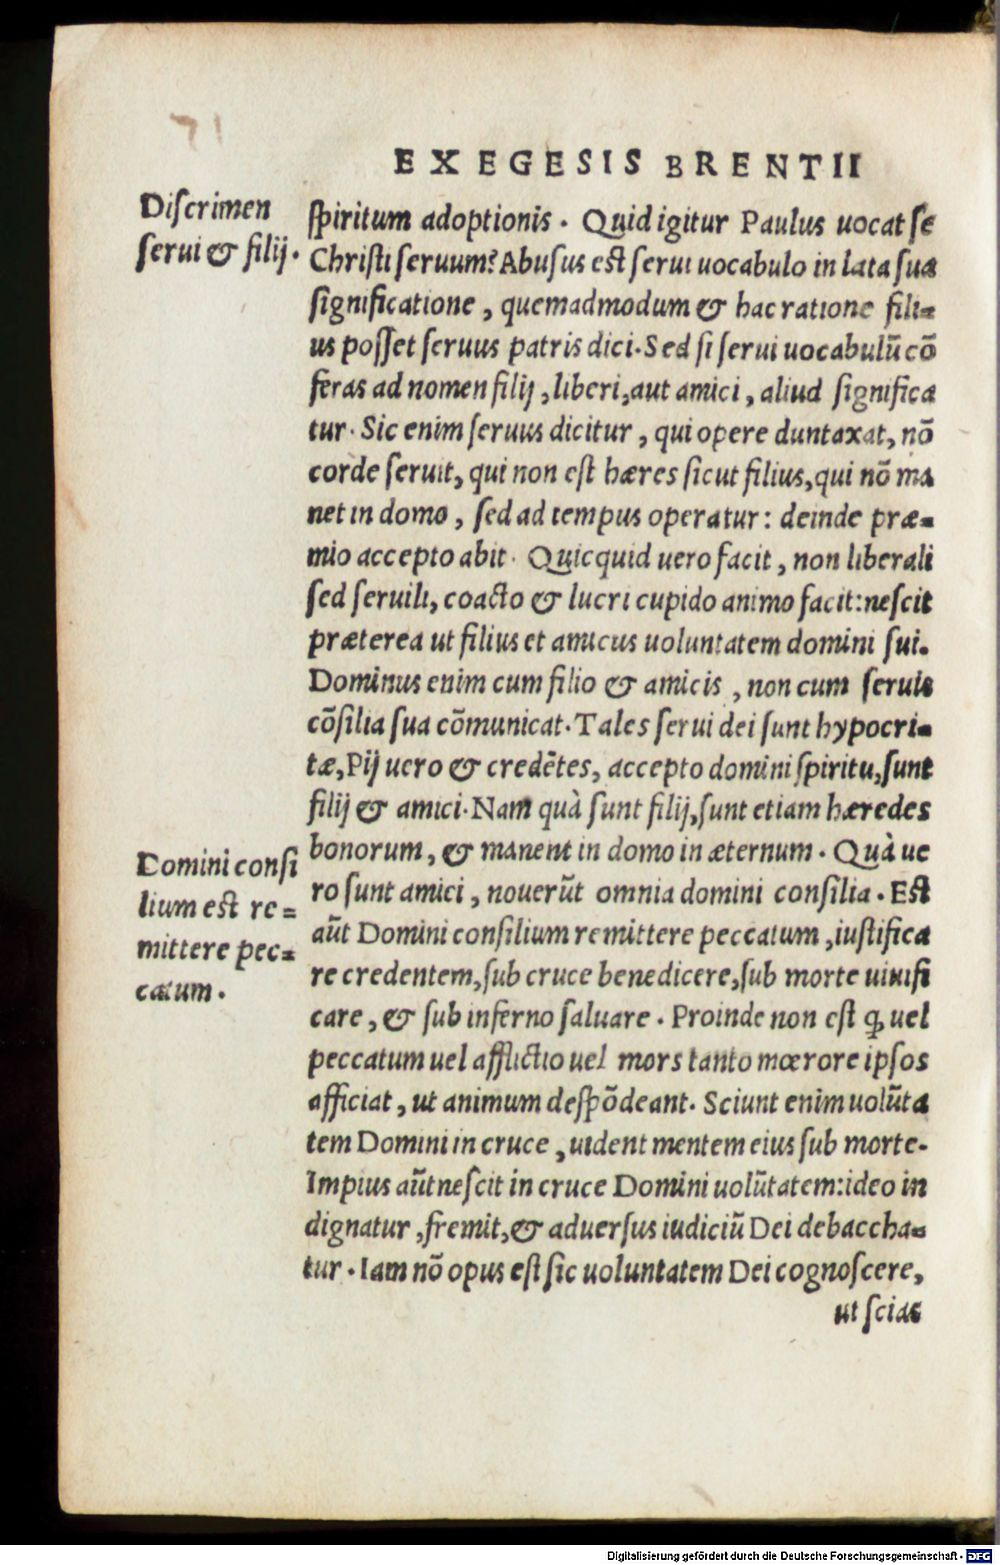 71
EXEGESIS BRENTII
Diſcrimen
ſerui & filij.
ſpiritum adoptionis. Quid igitur Paulus uocat ſe
Chriſti ſeruum? Abuſus eſt ſerui uocabulo in lata ſua
ſignificatione, quemadmodum & hac ratione fili=
us poſſet ſeruus patris dici. Sed ſi ſerui uocabulū cō
feras ad nomen filij, liberi, aut amici, aliud ſignifica
tur. Sic enim ſeruus dicitur, qui opere duntaxat, nō
corde ſeruit, qui non eſt hæres ſicut filius, qui nō ma
net in domo, ſed ad tempus operatur: deinde præ=
mio accepto abit. Quicquid uero facit, non liberali
ſed ſeruili, coacto & lucri cupido animo facit: neſcit
præterea ut filius et amicus uoluntatem domini ſui.
Dominus enim cum filio & amicis, non cum ſeruis
cōſilia ſua cōmunicat. Tales ſerui dei ſunt hypocri=
tæ, Pij uero & credētes, accepto domini ſpiritu, ſunt
filij & amici. Nam quà ſunt filij, ſunt etiam hæredes
bonorum, & manent in domo in æternum. Quà ue
ro ſunt amici, nouerūt omnia domini conſilia. Eſt
aūt Domini conſilium remittere peccatum, iuſtifica
re credentem, ſub cruce benedicere, ſub morte uiuifi
care, & ſub inferno ſaluare. Proinde non eſt ꝙ uel
peccatum uel afflictio uel mors tanto mœrore ipſos
afficiat, ut animum deſpōdeant. Sciunt enim uolūta
tem Domini in cruce, uident mentem eius ſub morte.
Impius aūt neſcit in cruce Domini uolūtatem: ideo in
dignatur, fremit, & aduerſus iudiciū Dei debaccha=
tur. Iam nō opus eſt ſic uoluntatem Dei cognoſcere,
ut ſcias
Domini conſi
lium eſt re=
mittere pec=
catum.
Digitalisierung gefördert durch die Deutsche Forschungsgemeinschaft - DFG